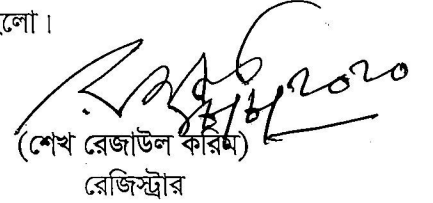 লো।
(শেখ রেজাউল করিম)
রেজিস্ট্রার